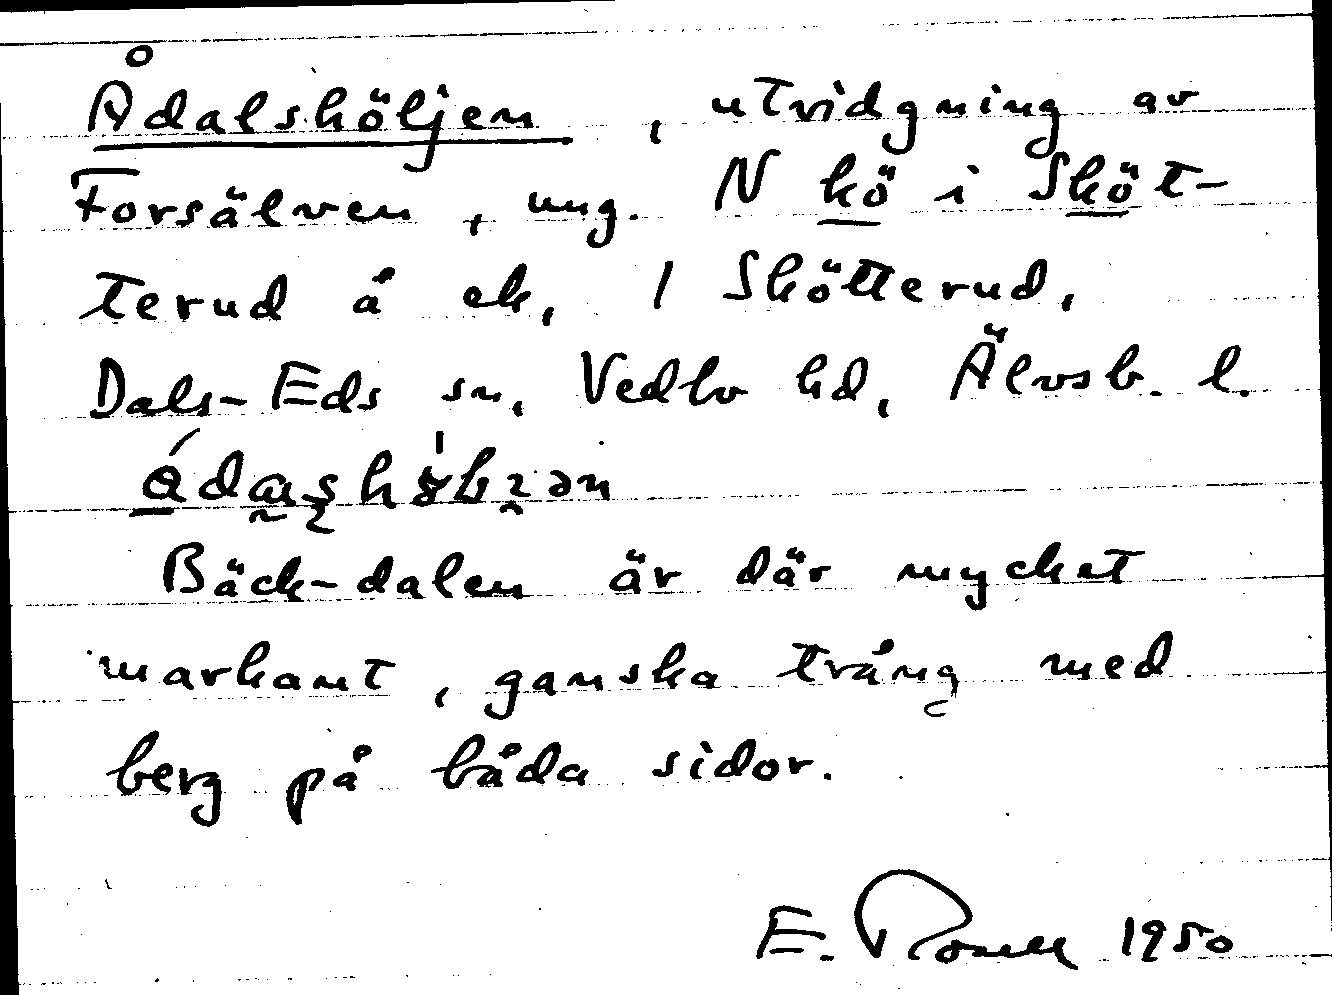 Ådalshöljen, utvidgning av
Forsälven, ung. N kö i Sköt-
terud å ek, 1 Skötterud,
Dals-Eds sn, Vedbo hd, Älvsb. l.
Bäck-dalen är där mycket
markant, ganska trång med
berg på båda sidor.
E. 1950